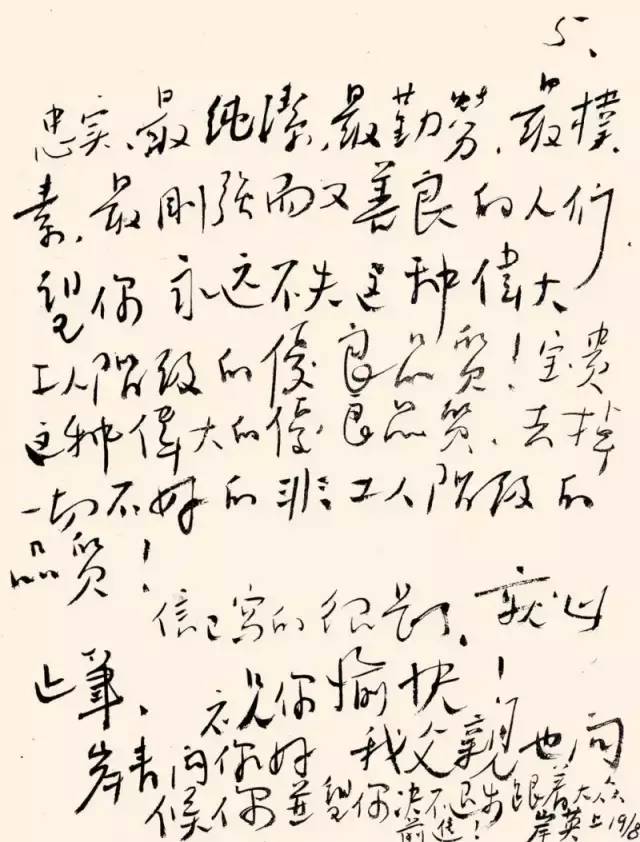 5、
忠实、最純潔、最勤勞、最樸
素、最刚强而又善良的人们，
望你永远不失这种偉大
工人阶级的優良品質！宝贵
这种偉大的優良品質、去掉
一切不好的非工人阶级的
品質！
信已写的很長了、就此
止筆、祝你愉快！
岸青问你好 我父親也问
候你並望你决不退步跟着大众
前進！
岸英上 19/8